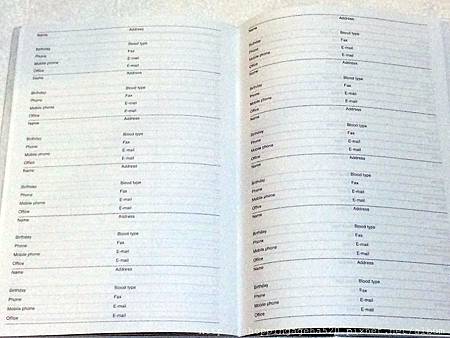 Name Address
Birthday Blood type
Phone Fax
Mobile phone E-mail
Office E-mail
Name Address
Birthday Blood type
Phone Fax
Mobile phone E-mail
Office E-mail
Name Address
Birthday Blood type
Phone Fax
Mobile phone E-mail
Office E-mail
Name Address
Birthday Blood type
Phone Fax
Mobile phone E-mail
Office E-mail
Name Address
Birthday Blood type
Phone Fax
Mobile phone E-mail
Office E-mail
Name Address
Birthday Blood type
Phone Fax
Mobile phone E-mail
Office E-mail
Name Address
Birthday Blood type
Phone Fax
Mobile phone E-mail
Office E-mail
Name Address
Birthday Blood type
Phone Fax
Mobile phone E-mail
Office E-mail
Name Address
Birthday Blood type
Phone Fax
Mobile phone E-mail
Office E-mail
Name Address
Birthday Blood type
Phone Fax
Mobile phone E-mail
Office E-mail
Name Address
Birthday Blood type
Phone Fax
Mobile phone E-mail
Office E-mail
Name Address
Birthday Blood type
Phone Fax
Mobile phone E-mail
Office E-mail